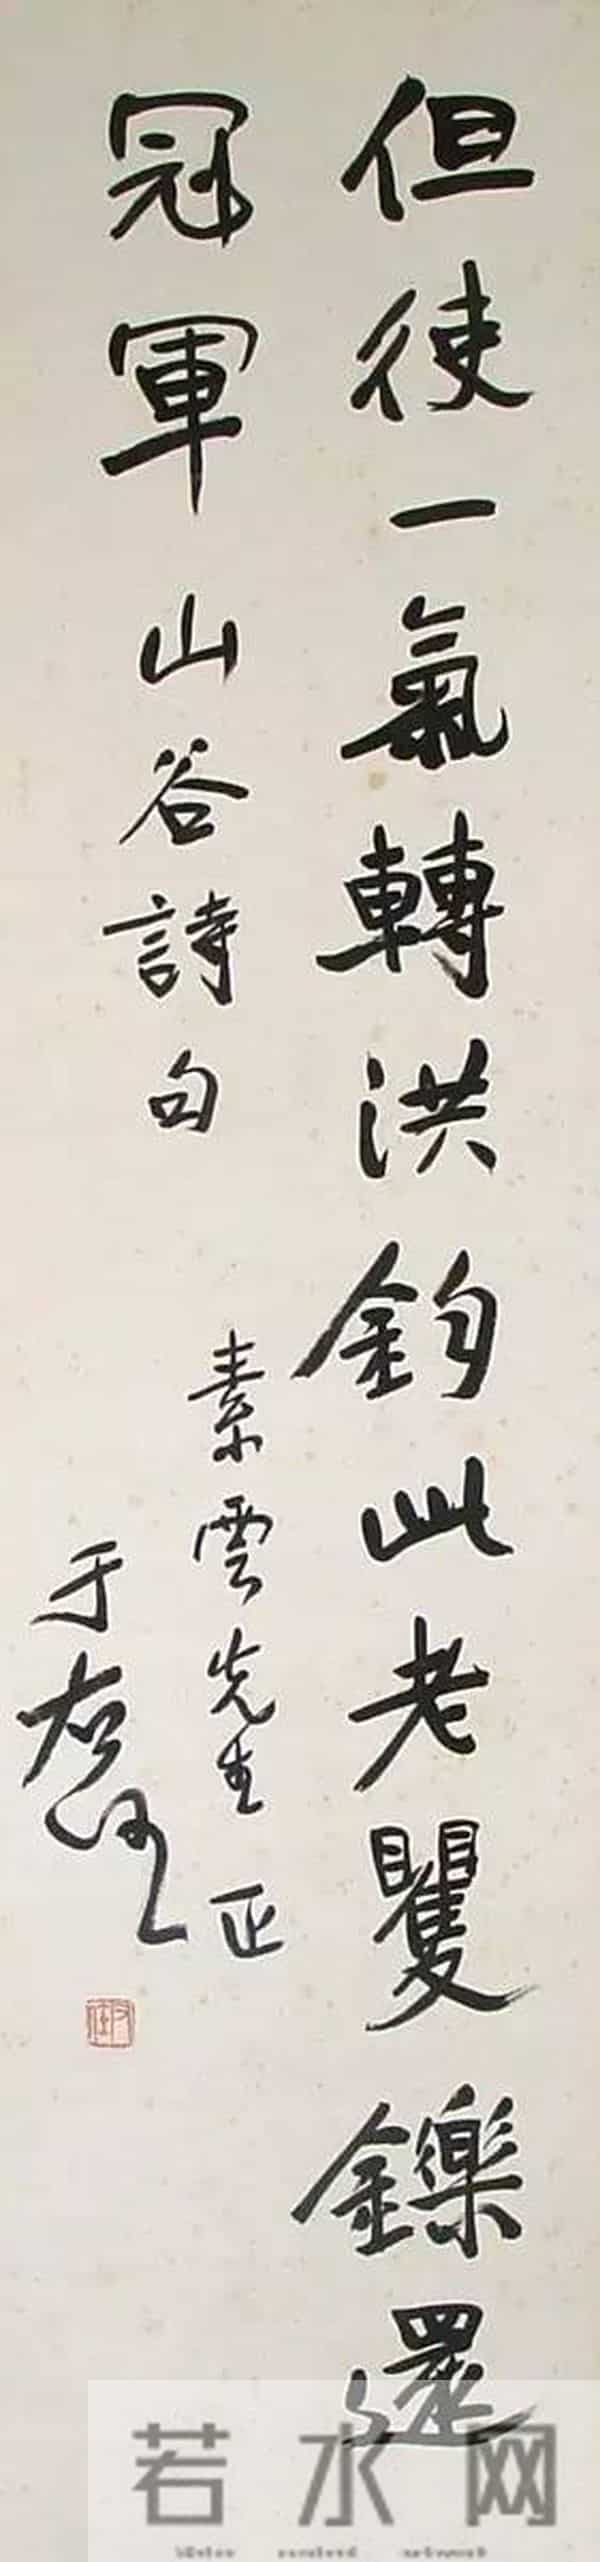 但使一氣轉洪鈞此老矍鑠還
冠軍山谷詩句
素雲先生正
于右任
若水网